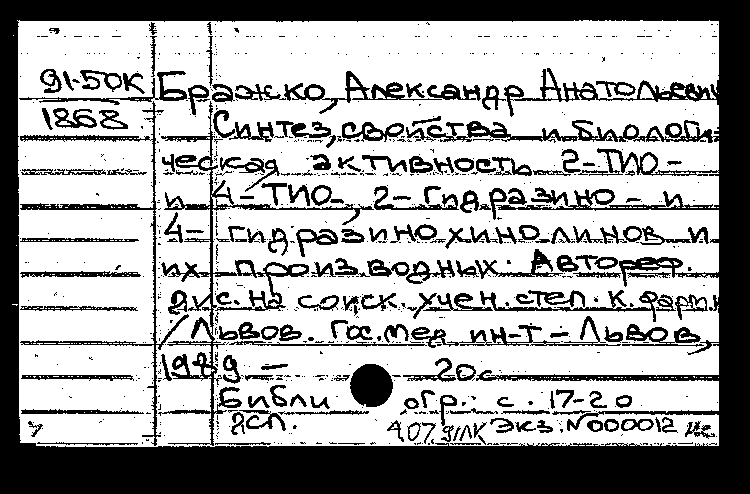 91-50к Бражко, Александр Анатольевич
1868 Синтез, свойства и биологи-
ческая активность 2-тио-
и 4-тио-, 2-гидразино- и
4-гидразинохинолинов и
их производных. Автореф.
дис. на соиск. учен. степ. к. фарм. н
/Львов. гос. мед ин-т - Львов,
1989 - 20с
Библиогр.: с. 17-20
дсп. Экз. N000012